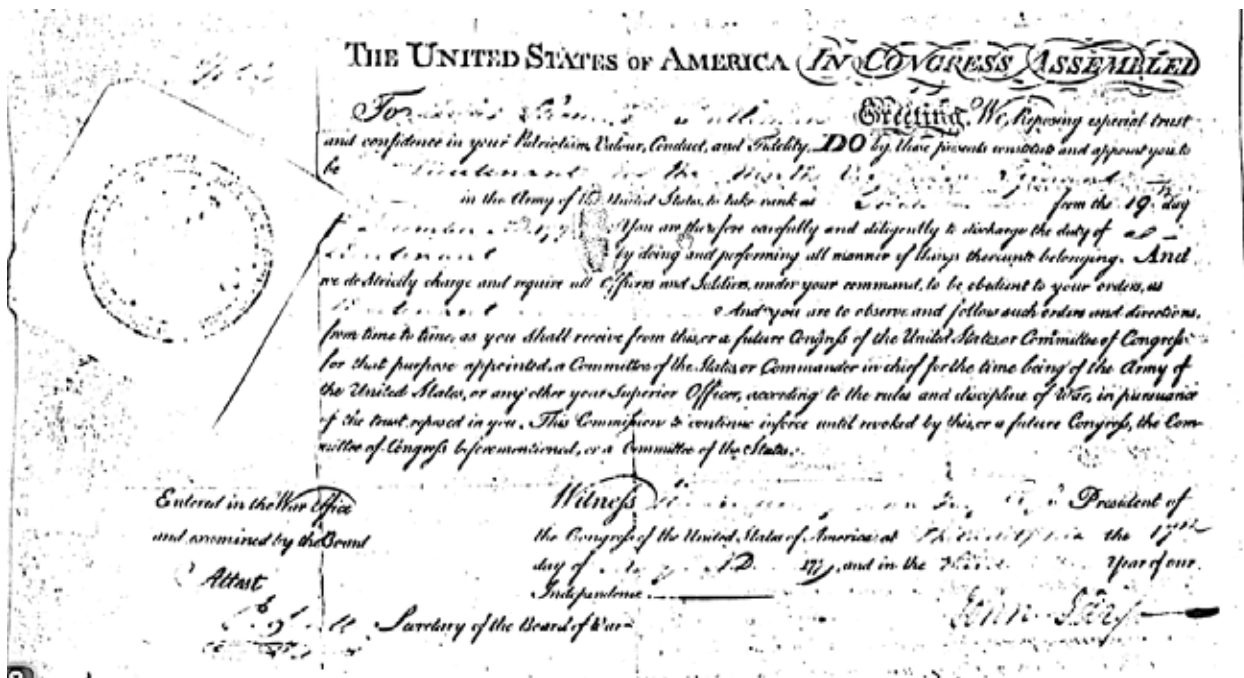 THE UNITED STATES OF AMERICA IN CONGRESS ASSEMBLED
To Greeting, We, Reposing especial trust
and confidence in your Patriotism, Valour, Conduct, and Fidelity, DO by these presents constitute and appoint you to
be Lieutenant in the
in the Army of the United States, to take rank as from the 19th day
You are therefore carefully and diligently to discharge the duty of
Lieutenant by doing and performing all manner of things thereunto belonging. And
we do strictly charge and require all Officers and Soldiers, under your command, to be obedient to your orders, as
And you are to observe and follow such orders and directions,
from time to time, as you shall receive from this, or a future Congress of the United States, or Committee of Congress
for that purpose appointed, a Committee of the States, or Commander in chief for the time being of the Army of
the United States, or any other your Superior Officer, according to the rules and discipline of War, in pursuance
of the trust reposed in you. This Commission to continue in force until revoked by this, or a future Congress, the Com-
mittee of Congress beforementioned, or a Committee of the States.
Entered in the War Office
and examined by the Board
Attest
Secretary of the Board of War
Witness President of
the Congress of the United States of America at the 17th
day of A.D. 177 , and in the Year of our
Independence
John Jay